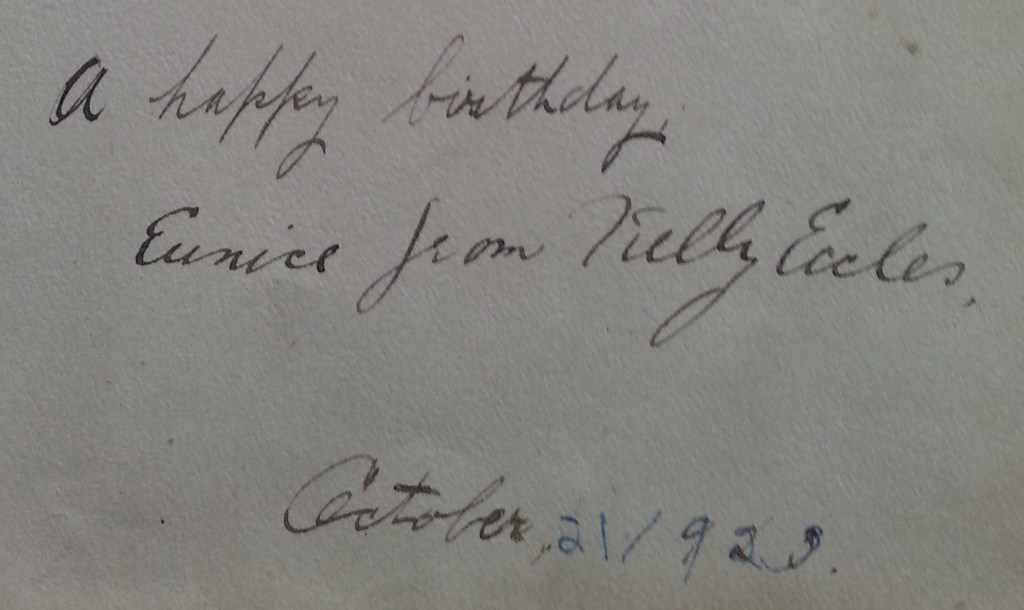 A happy birthday,
Eunice from Nelly Eccles,
October, 21/923.